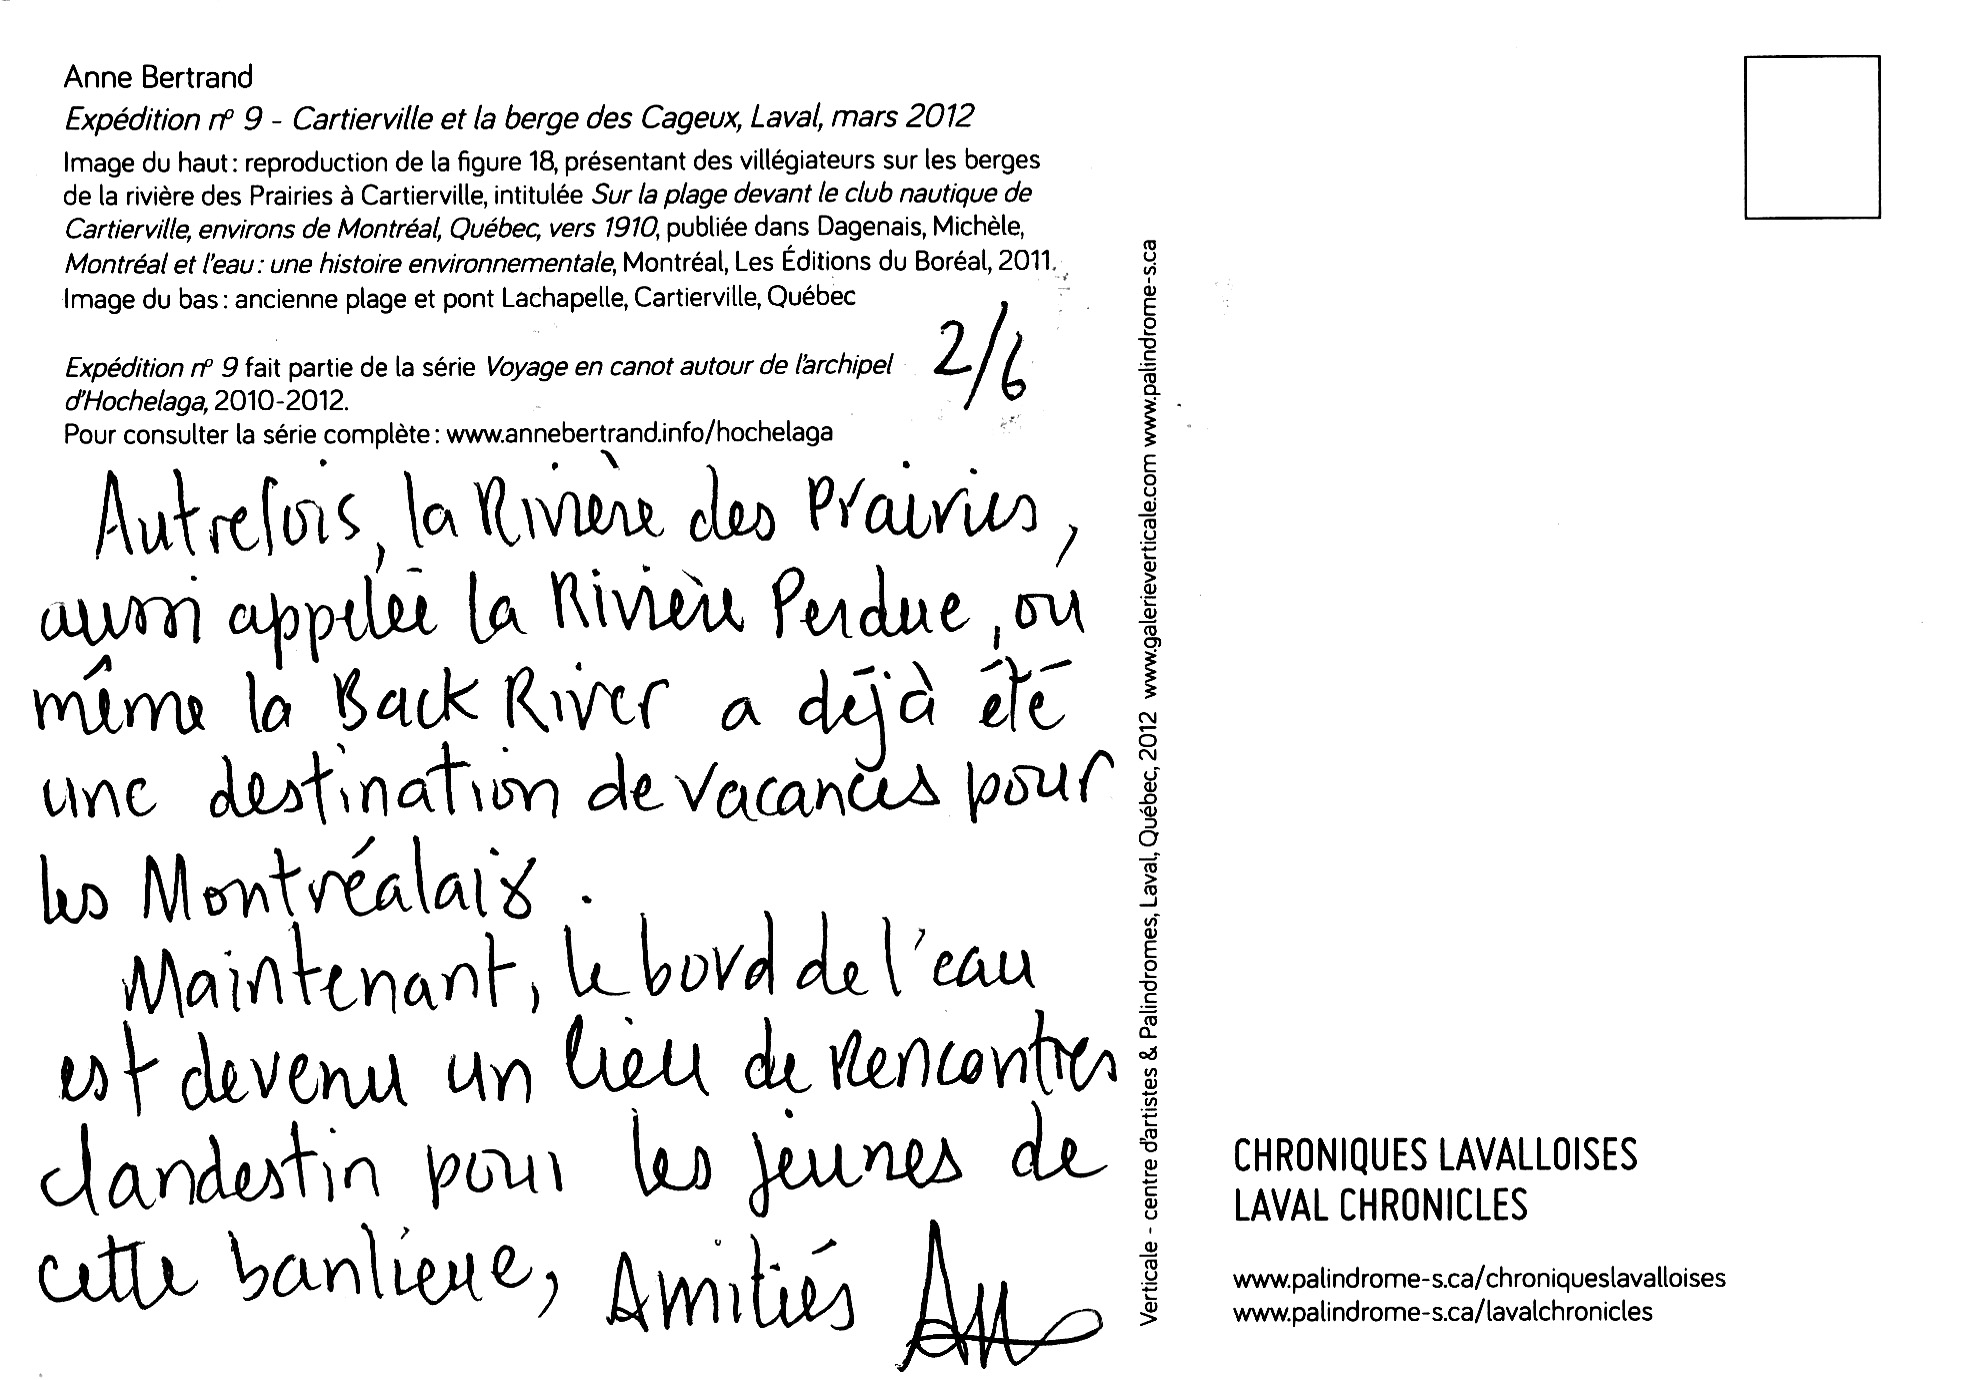 Anne Bertrand
Expédition nº 9 - Cartierville et la berge des Cageux, Laval, mars 2012
Image du haut : reproduction de la figure 18, présentant des villégiateurs sur les berges
de la rivière des Prairies à Cartierville, intitulée Sur la plage devant le club nautique de
Cartierville, environs de Montréal, Québec, vers 1910, publiée dans Dagenais, Michèle,
Montréal et l'eau : une histoire environnementale, Montréal, Les Éditions du Boréal, 2011.
Image du bas : ancienne plage et pont Lachapelle, Cartierville, Québec
2/6
Expédition nº 9 fait partie de la série Voyage en canot autour de l'archipel
d'Hochelaga, 2010-2012.
Pour consulter la série complète : www.annebertrand.info/hochelaga
Autrefois, la Rivière des Prairies,
aussi appelée la Rivière Perdue, ou
même la Back River a déjà été
une destination de vacances pour
les Montréalais.
Maintenant, le bord de l'eau
est devenu un lieu de rencontres
clandestin pour les jeunes de
cette banlieue, Amitiés
Verticale - centre d'artistes & Palindromes, Laval, Québec, 2012 www.galerieverticale.com www.palindrome-s.ca
CHRONIQUES LAVALLOISES
LAVAL CHRONICLES
www.palindrome-s.ca/chroniqueslavalloises
www.palindrome-s.ca/lavalchronicles